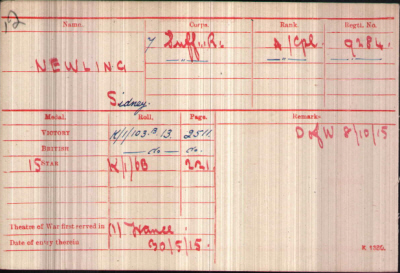 12
Name. Corps. Rank. Regtl. No.
7 Suff. R. A/Cpl. 9284.
NEWLING
Sidney.
Medal. Roll. Page. Remarks.
VICTORY K/1/103.B.13. 2511. D of W 8/10/15
BRITISH — do — do.
15 STAR K/1/6B 221.
Theatre of War first served in (1) France.
Date of entry therein 30/5/15.
K 1380.